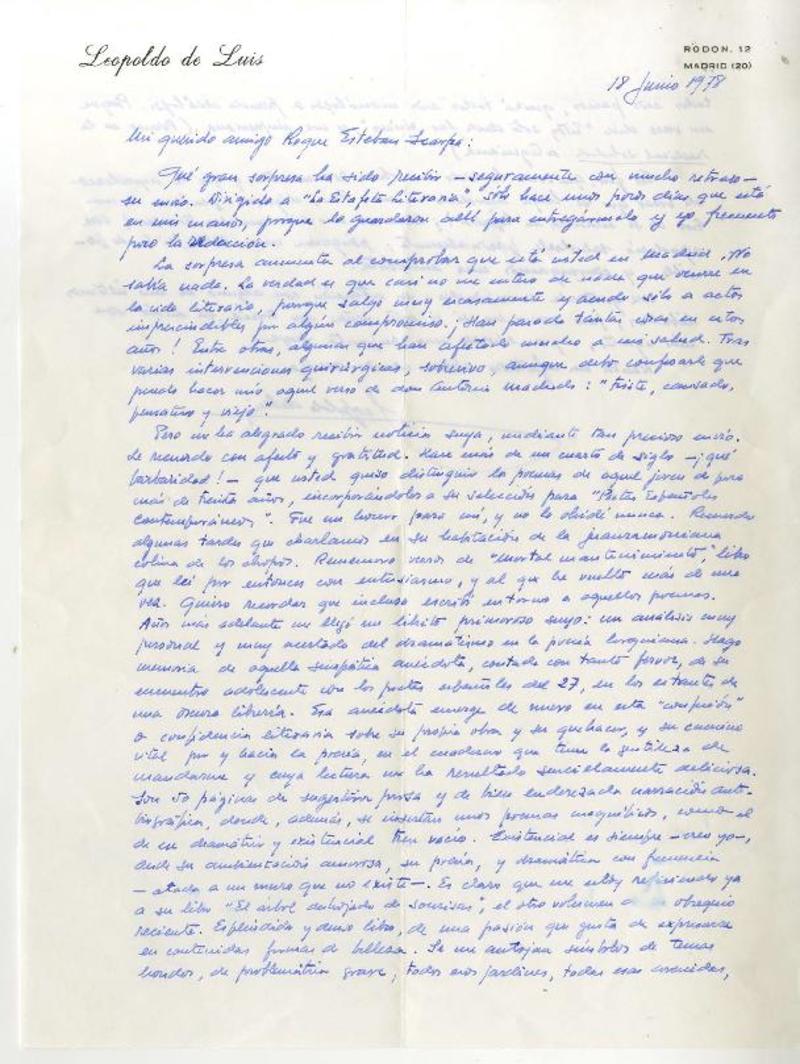 Leopoldo de Luis
RODON. 12
MADRID (20)
18 Junio 1978
Mi querido amigo Roque Esteban Scarpa:
Qué gran sorpresa ha sido recibir —seguramente con mucho retraso—
su envío. Dirigido a "La Estafeta Literaria", sólo hace unos pocos días que está
en mis manos, porque lo guardaron allí para entregármelo y yo frecuento
poco la redacción.
La sorpresa aumenta al comprobar que está usted en Madrid. No
sabía nada. La verdad es que casi no me entero de nada que ocurre en
la vida literaria, porque salgo muy escasamente y acudo sólo a actos
imprescindibles por algún compromiso. ¡Han pasado tantas cosas en estos
años! Entre otras, algunas que han afectado mucho a mi salud. Tras
varias intervenciones quirúrgicas, sobrevivo aunque debo confesarle que
puedo hacer mío aquel verso de don Antonio Machado: "triste, cansado,
pensativo y viejo".
Pero me ha alegrado recibir noticia suya, mediante tan precioso envío.
Le recuerdo con afecto y gratitud. Hace más de un cuarto de siglo —¡qué
barbaridad!— que usted quiso distinguir los poemas de aquel joven de poco
más de treinta años, incorporándolos a su selección para "Poetas Españoles
Contemporáneos". Fue un honor para mí, y no lo olvidé nunca. Recuerdo
algunas tardes que charlamos en su habitación de la juanramoniana
colina de los chopos. Rememoro versos de "Mortal mantenimiento", libro
que leí por entonces con entusiasmo, y al que he vuelto más de una
vez. Quiero recordar que incluso escribí en torno a aquellos poemas.
Años más adelante me llegó un librito primoroso suyo: un análisis muy
personal y muy acertado del dramatismo en la poesía lorquiana. Hago
memoria de aquella simpática anécdota, contada con tanto fervor, de su
encuentro adolescente con los poetas españoles del 27, en los estantes de
una oscura librería. Esa anécdota emerge de nuevo en esta "confesión"
o confidencia literaria sobre su propia obra y su quehacer, y su camino
vital por y hacia la poesía, en el cuaderno que tuvo la gentileza de
mandarme y cuya lectura me ha resultado sencillamente deliciosa.
Son 50 páginas de sugestiva prosa y de bien enderezada narración auto-
biográfica, donde, además, se insertan unos poemas magníficos, como el
de un dramático y existencial tren vacío. Existencial es siempre —creo yo—,
desde su ambientación amorosa, su poesía, y dramática con frecuencia
—atada a un muro que no existe—. Es claro que me estoy refiriendo ya
a su libro "El árbol deshojado de sonrisas", el otro volumen de obsequio
reciente. Espléndido y denso libro, de una pasión que gusta de expresarse
en contenidas formas de belleza. Se me antojan símbolos de temas
hondos, de problemática grave, todos esos jardines, todas esas avenidas,